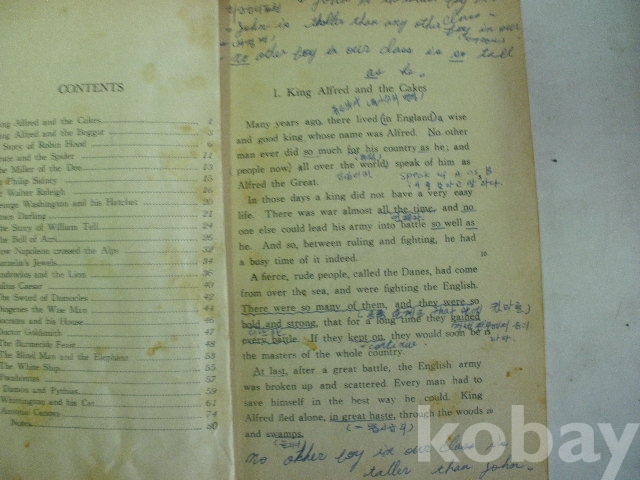 John is taller than any other boy in our
class
no other boy in our class is so tall
as he.
CONTENTS
King Alfred and the Cakes 1
King Alfred and the Beggar 3
Story of Robin Hood 6
Bruce and the Spider 11
The Miller of the Dee 13
Philip Sidney 15
Walter Raleigh 16
George Washington and his Hatchet 20
Grace Darling 21
The Story of William Tell 24
The Bell of Atri 26
How Napoleon crossed the Alps 32
Cornelia's Jewels 34
Androclus and the Lion 36
Julius Caesar
The Sword of Damocles
Diogenes the Wise Man 44
Socrates and his House
Doctor Goldsmith 47
The Barmecide Feast 48
The Blind Man and the Elephant
The White Ship 55
Pocahontas
Damon and Pythias 59
Whittington and his Cat 61
Antonio Canova 74
Notes 80
1. King Alfred and the Cakes
Many years ago there lived (in England) a wise
and good king whose name was Alfred. No other
man ever did so much for his country as he; and
people now, all over the world, speak of him as
Alfred the Great.
speak of A as B
In those days a king did not have a very easy
life. There was war almost all the time, and no
one else could lead his army into battle so well as
he. And so, between ruling and fighting, he had
a busy time of it indeed.
10
A fierce, rude people, called the Danes, had come
from over the sea, and were fighting the English.
There were so many of them, and they were so
bold and strong, that for a long time they gained
every battle. If they kept on, they would soon be
continue
the masters of the whole country.
At last, after a great battle, the English army
was broken up and scattered. Every man had to
save himself in the best way he could. King
Alfred fled alone, in great haste, through the woods
and swamps.
no other boy in our class is
taller than John.
kobay